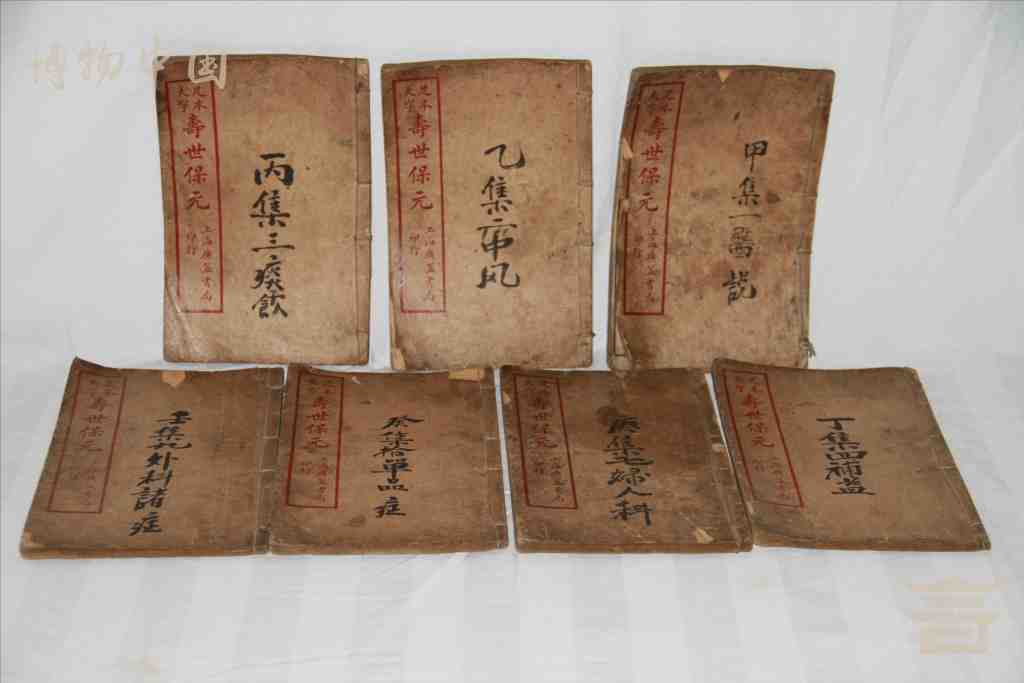 博物中国
大字
足本
壽世保元
上海廣益書局
印行
丙集三痰飲
大字
足本
壽世保元
上海廣益書局
印行
乙集二中风
大字
足本
壽世保元
上海廣益書局
印行
甲集一醫説
壽世保元
壬集九外科諸症
壽世保元
癸集拾單品症
壽世保元
集七婦人科
壽世保元
丁集四補益